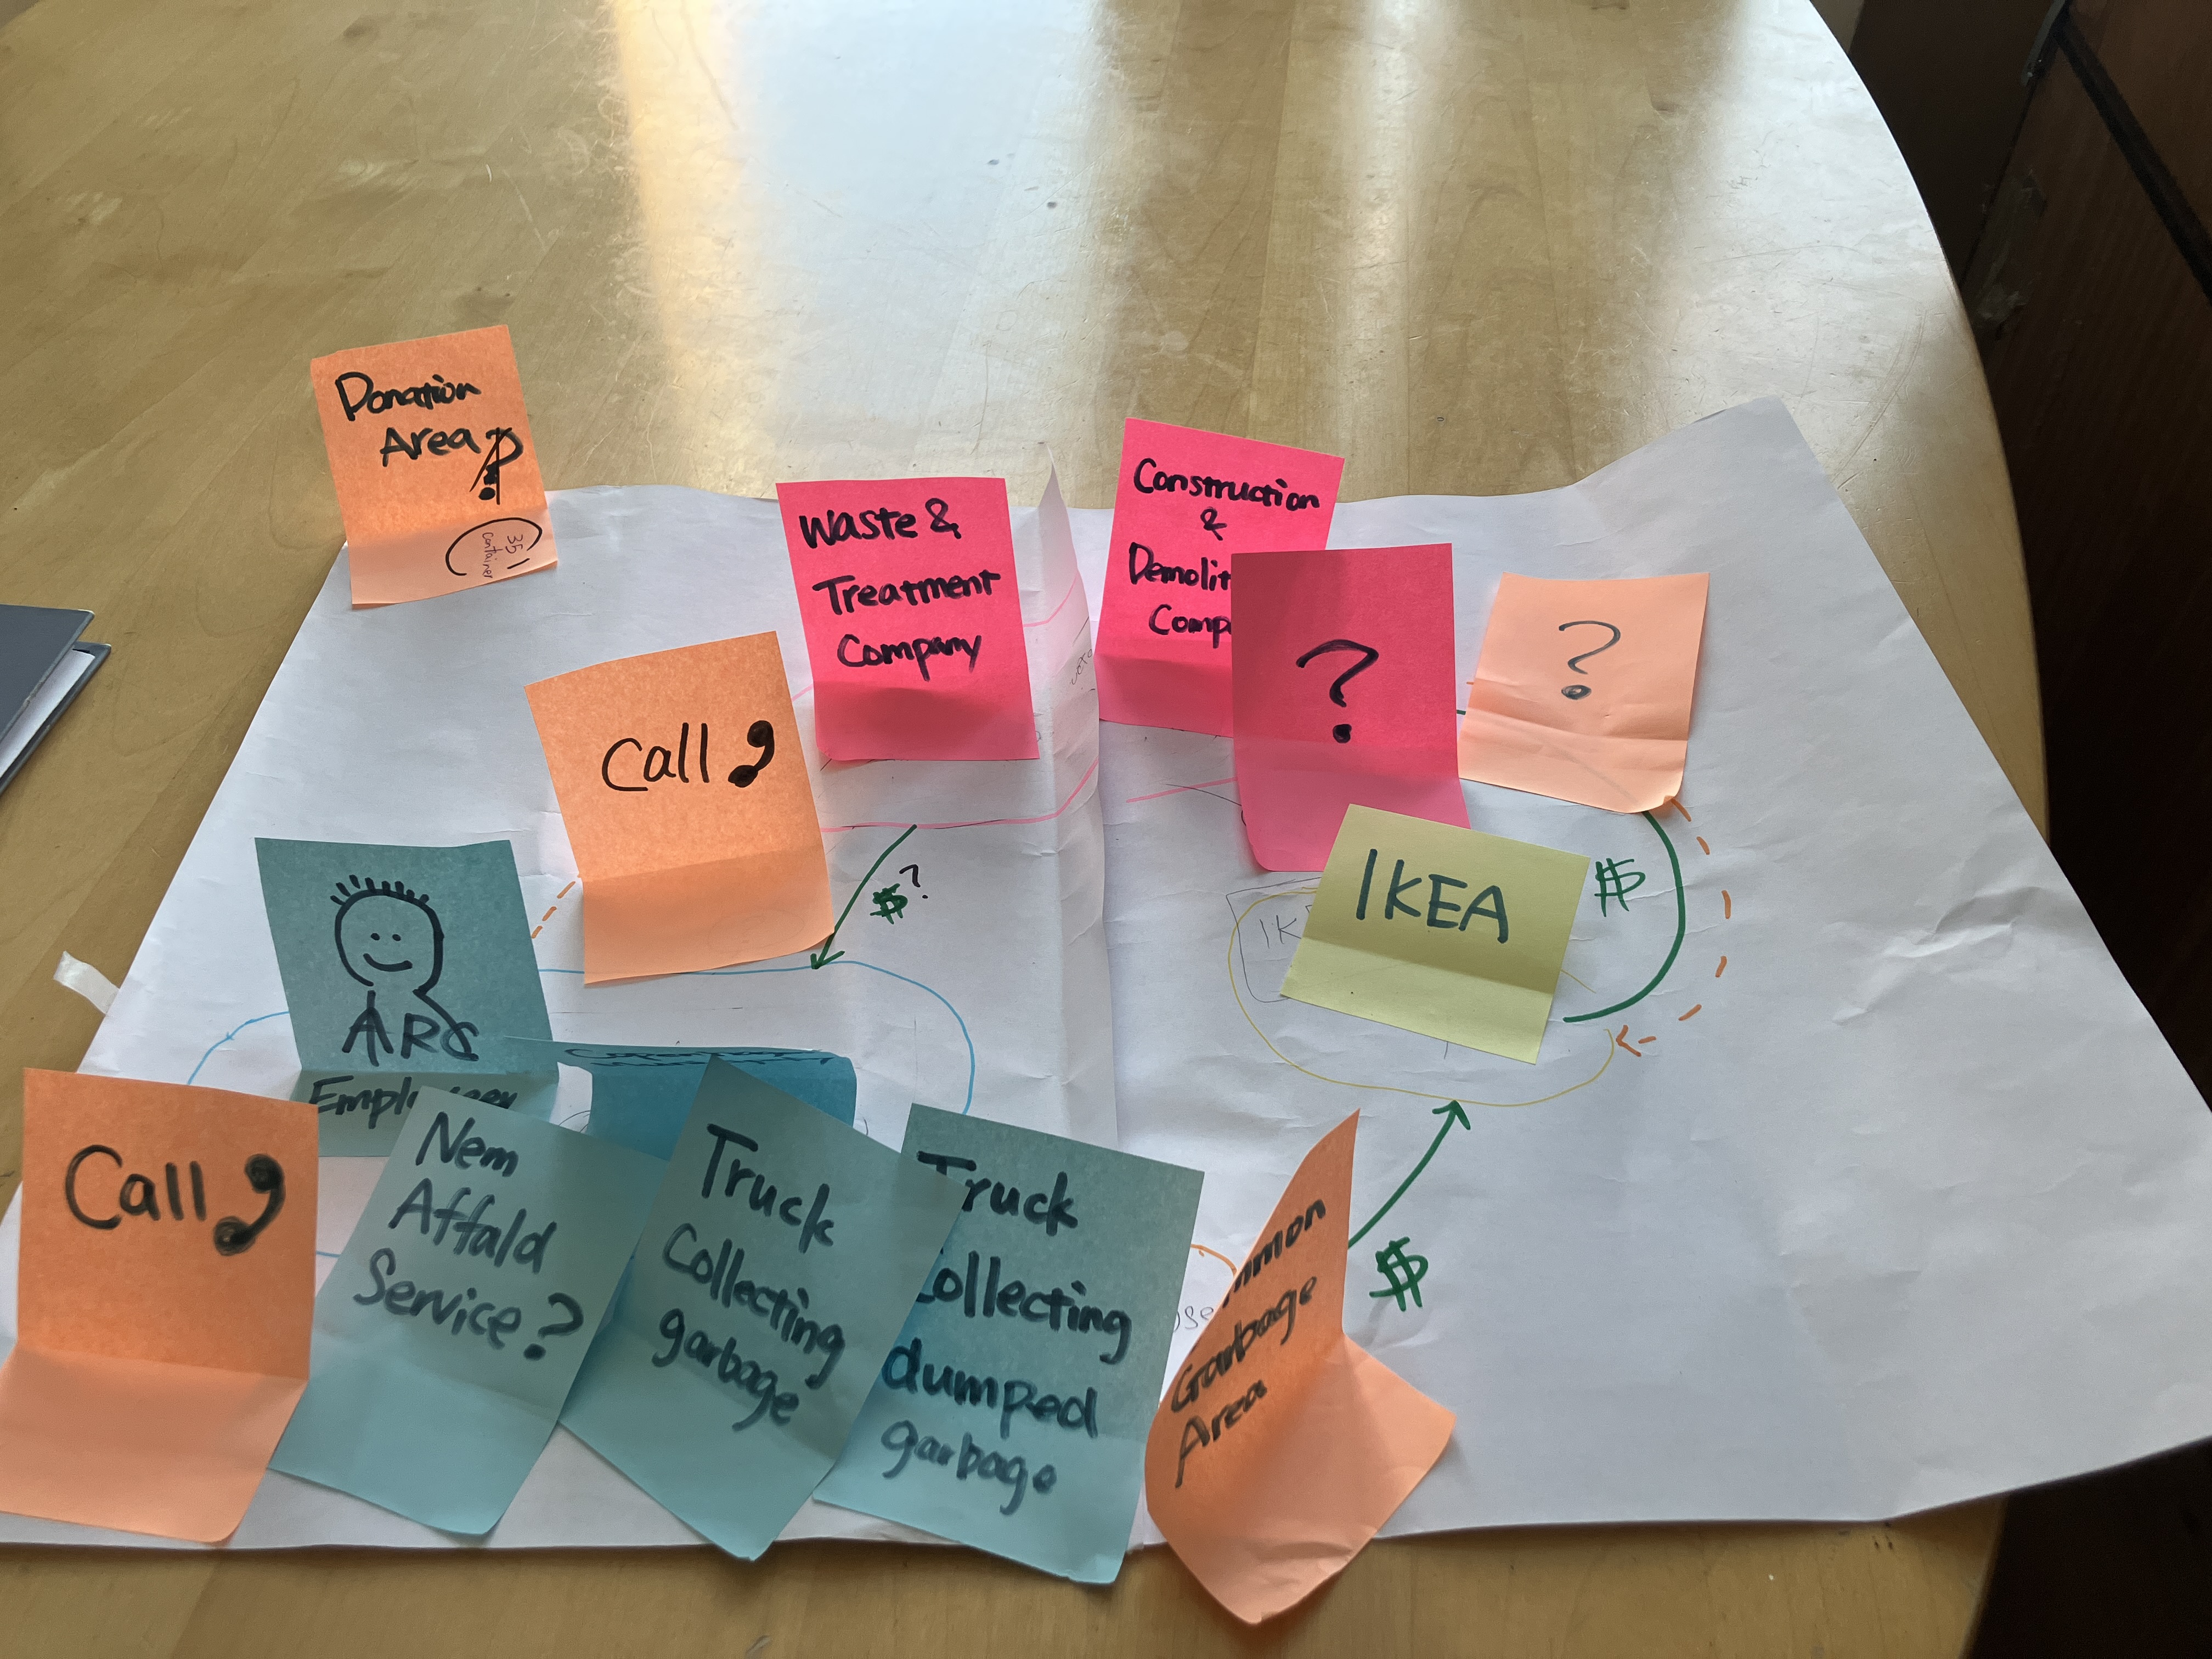 Donation
Area?
(351
container
Waste &
Treatment
Company
Construction
&
Demolit
Comp
?
?
Call
$?
IKEA
IK
$
ARC
Call
Nem
Affald
Service?
Truck
Collecting
garbage
Truck
Collecting
dumped
garbage
mmon
Garbage
Area
$